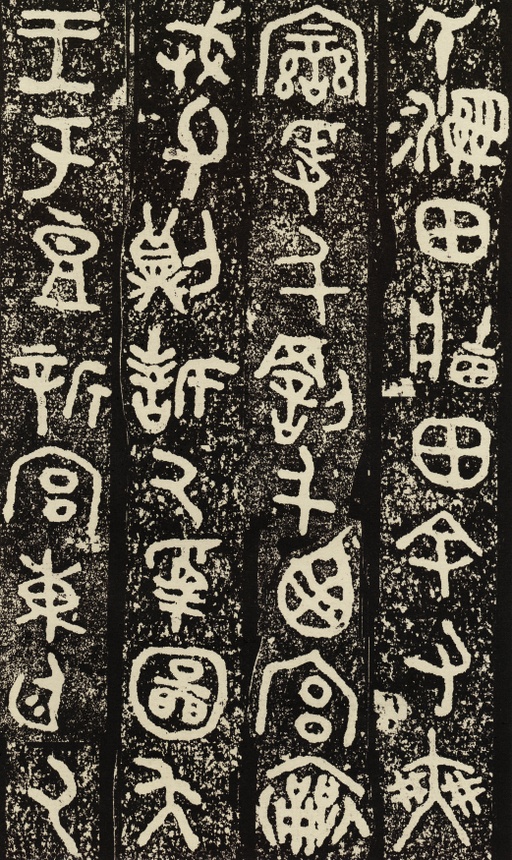 氏濕田牆田余又爽
爰千罰千西宮襄
武父則誓厥受圖夨
王于豆新宮東廷厥